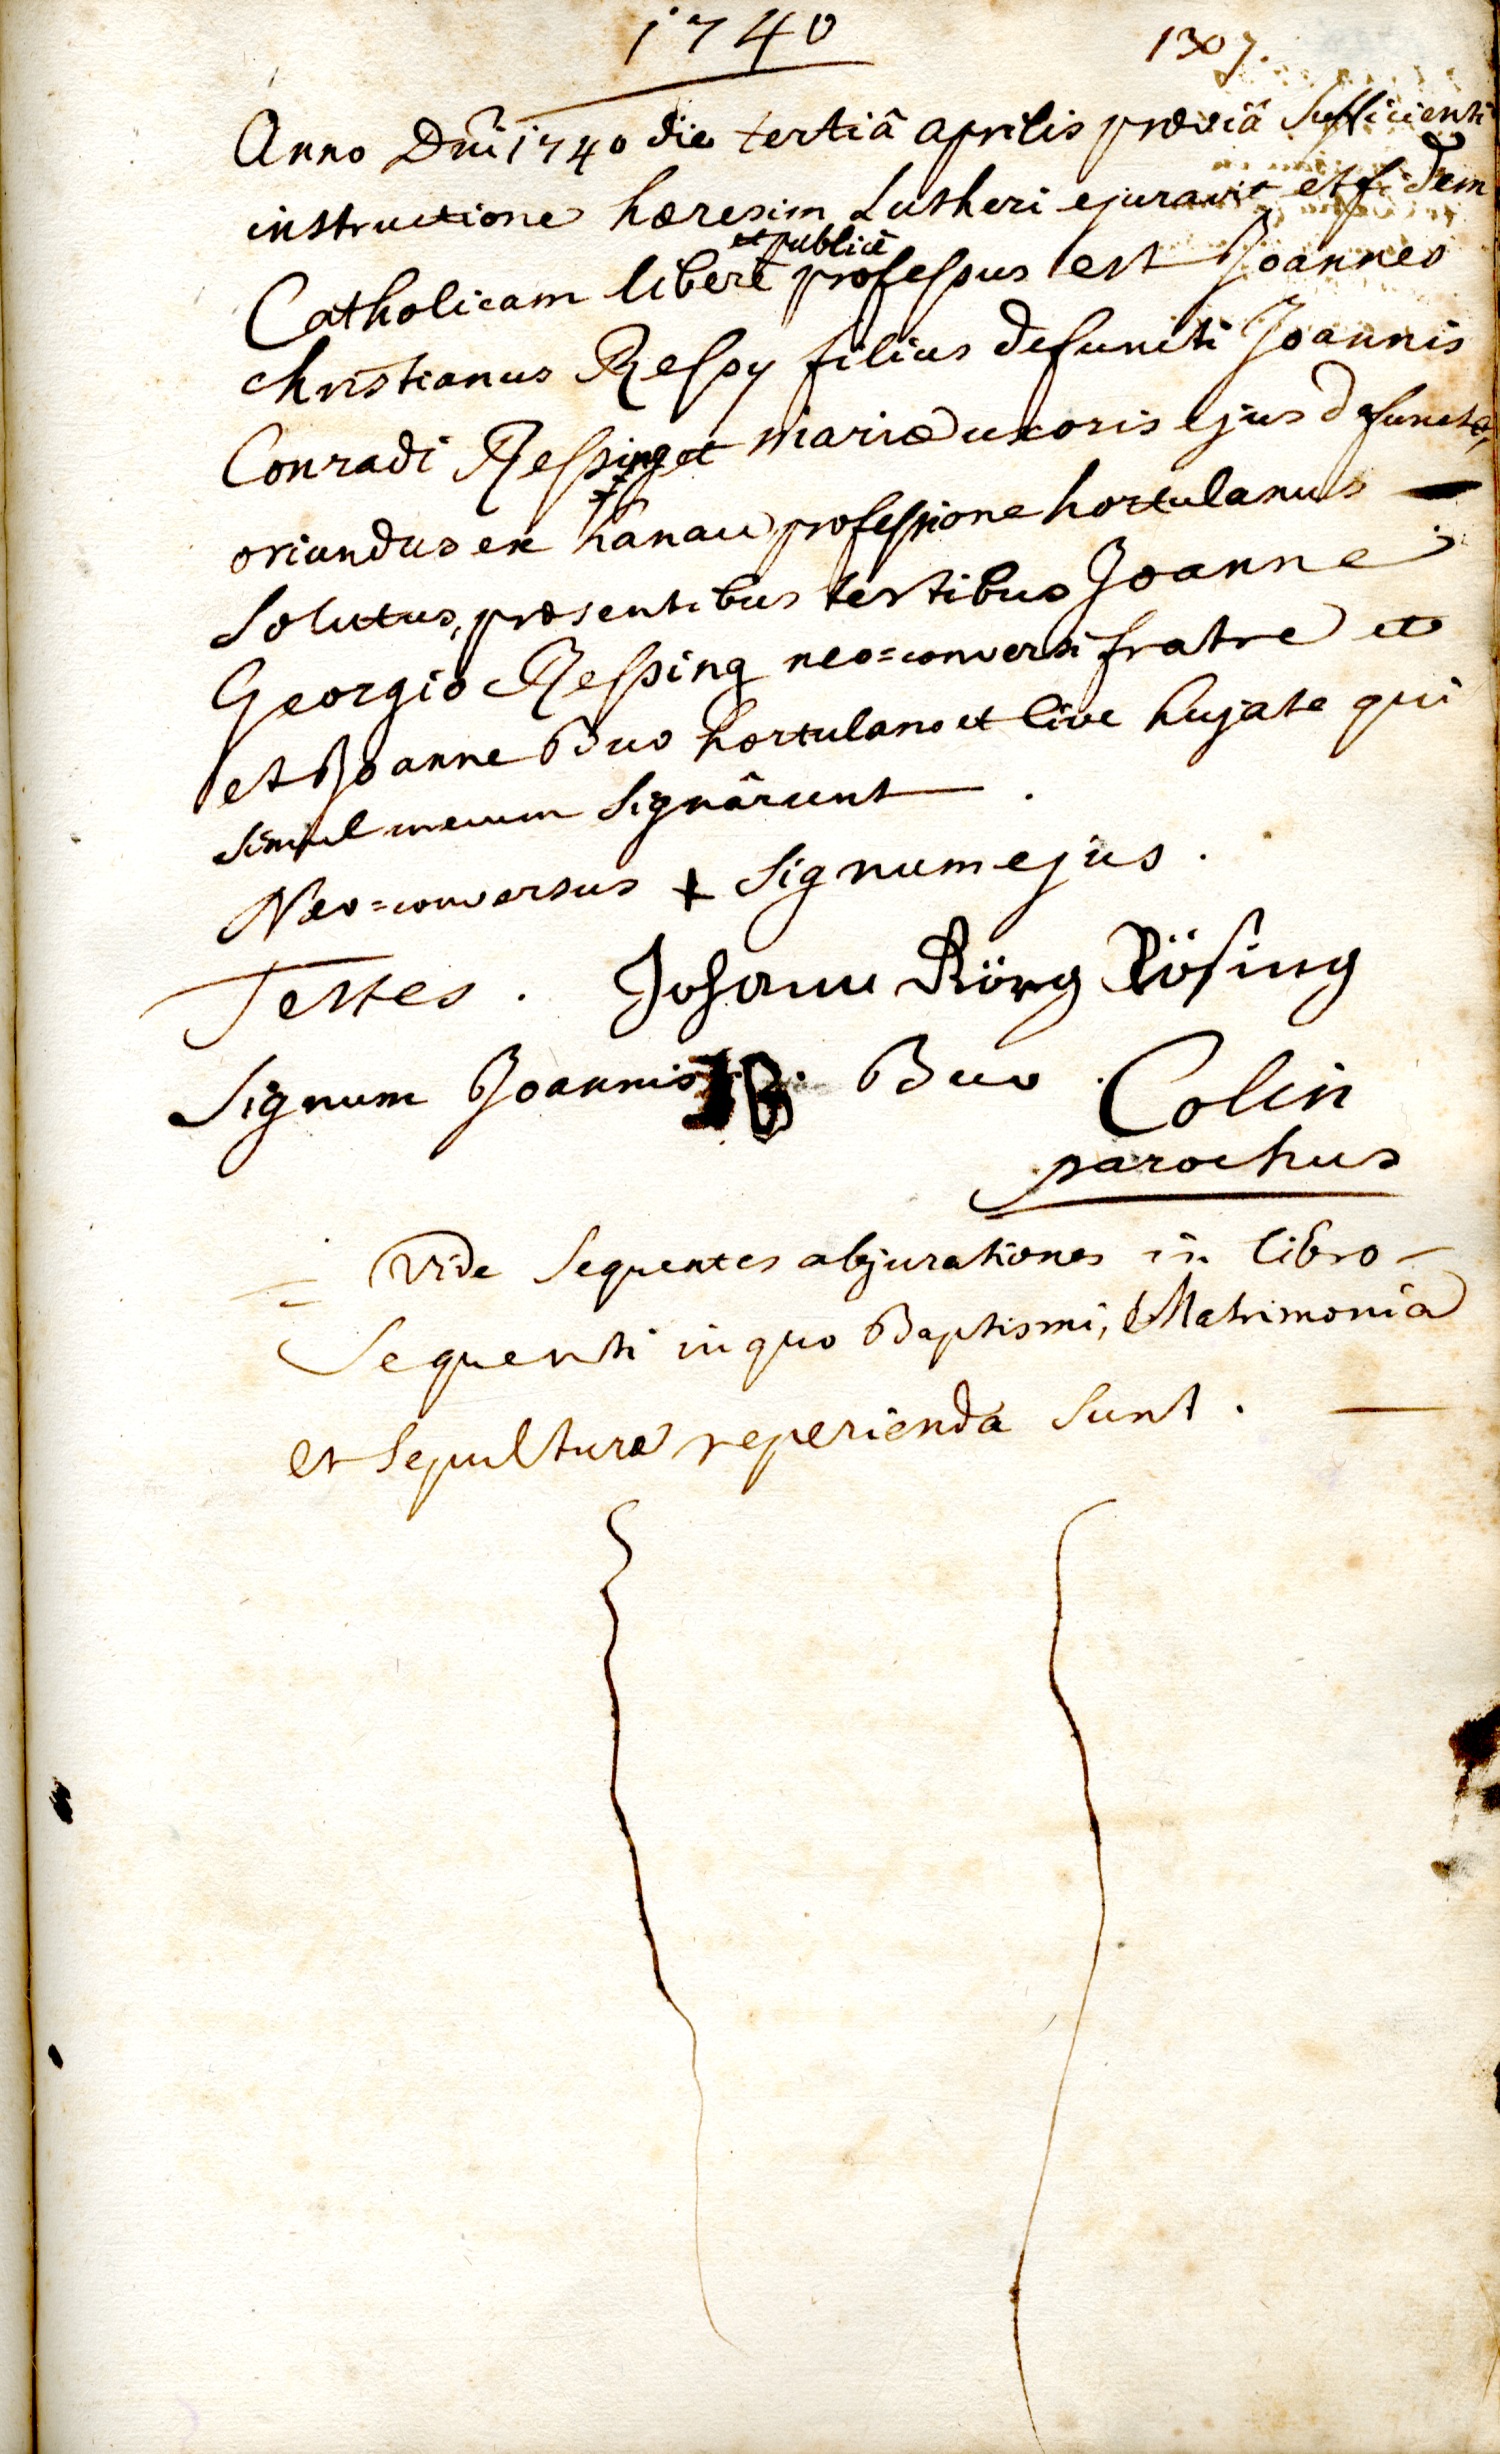 1740
1307.
Anno Dni 1740 die tertiâ aprilis præviâ sufficienti
instructione hæresim Lutheri ejuravit et fidem
et publicè
Catholicam liberè professus est Joannes
christianus Ressy filius defuncti Joannis
Conradi Ressing et mariæ uxoris ejus defunctæ
oriundus ex hanau professione hortulanus
solutus, præsentibus testibus Joanne
Georgio Ressing neo=conversi fratre et
et Joanne Buo hortulano et cive hujate qui
simul mecum signârunt.
Neo=conversus + signum ejus.
Testes. Johann Körg Rösing
Signum Joannis JB. Buo. Colin
parochus
= Vide sequentes abjurationes in libro
sequenti in quo Baptismi, Matrimonia
et sepulturæ reperienda sunt.